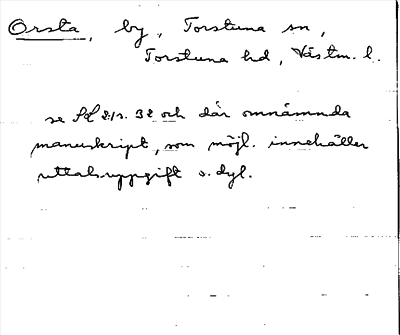 Orsta, by, Torstuna sn,
Torstuna hd, Västm. l.
se 2:1 s. 32 och där omnämnda
manuskript, som möjl. innehåller
uttalsuppgift o. dyl.